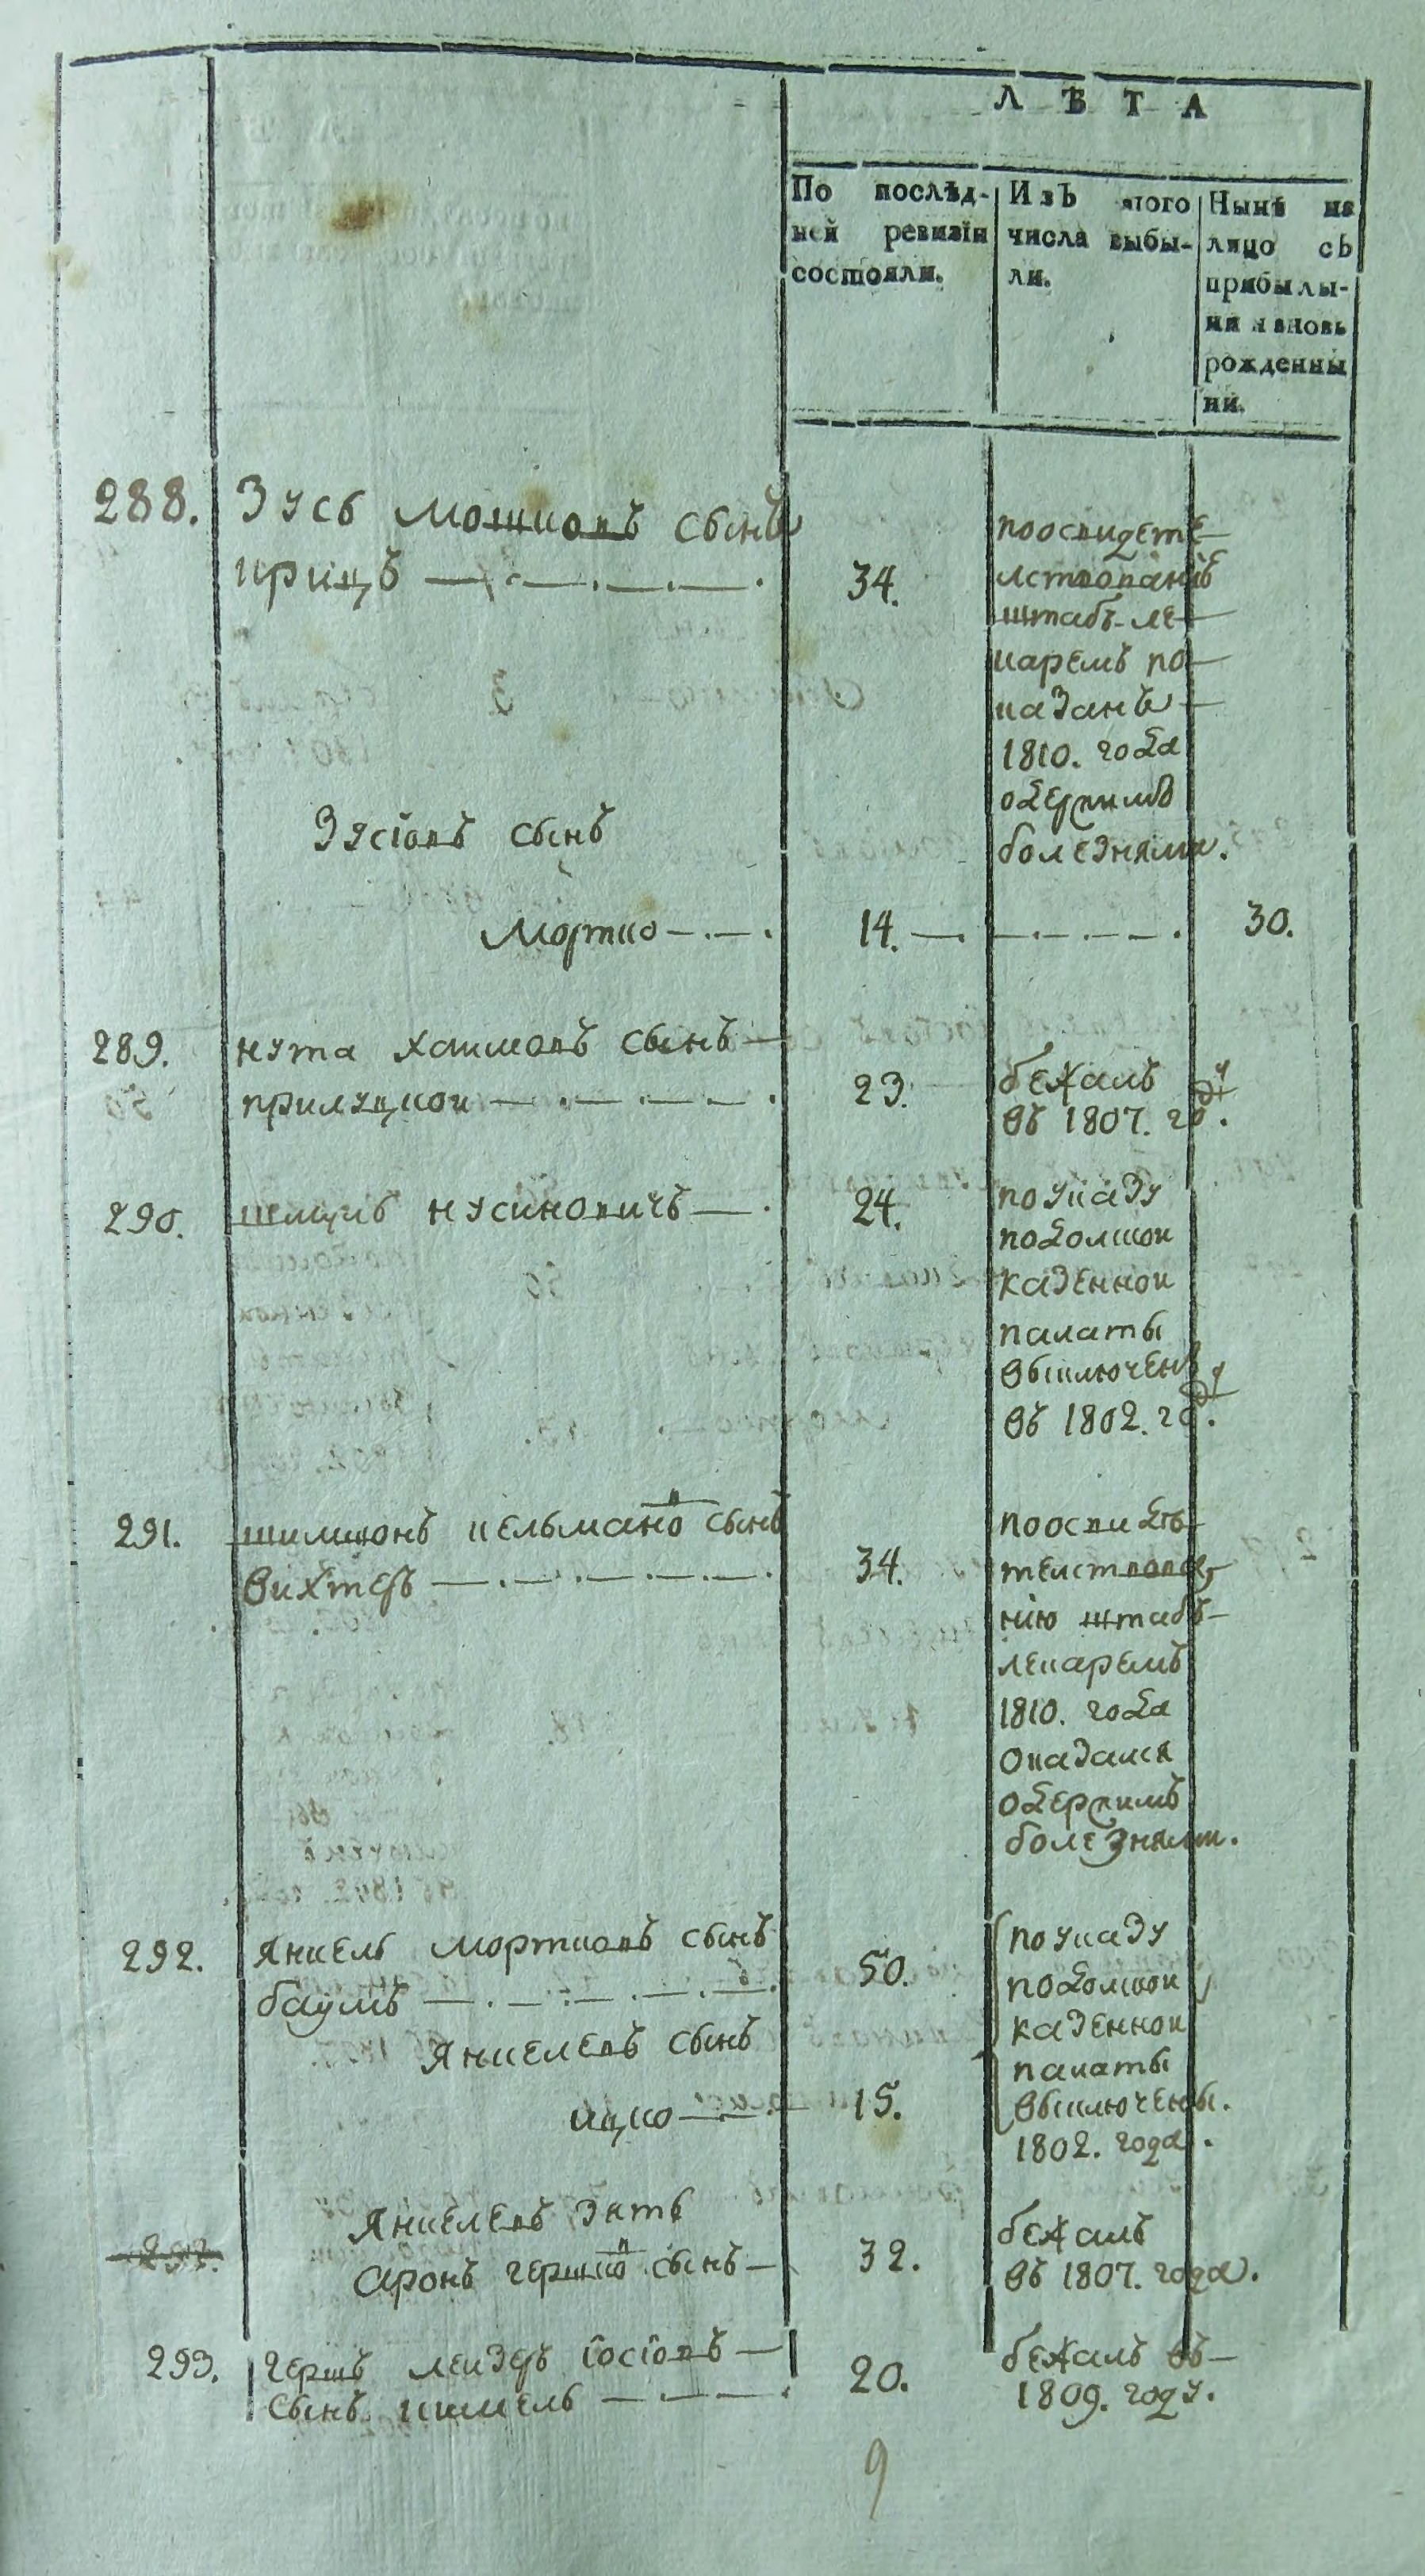 ЛѢТА
По послѣд-
ней ревизіи
состояли.
Изъ того
числа выбы-
ли.
Нынѣ на
лицо съ
прибылы-
ми и вновь
рожденны
ми.
288. Зусь мошковъ сынъ
крицъ — · — · — · — · 34.
поосвидете
лствованіѣ
штабъ-ле
каремъ по
казанъ
1810. года
одержимъ
болезнями.
Зусіовъ сынъ
мортко — · — · 14. — · — · — · — · 30.
289. нута хаимовъ сынъ —
прилуцкои — · — · — · — · 23.
бежалъ
въ 1807. году.
290. нусиновичъ — · 24.
по указу
подолшкои
казеннои
палаты
выключенъ
въ 1802. году.
291. шимшонъ кельмановъ сынъ
вихтеръ — · — · — · — · — · 34.
поосвидѣ
телствова
нію штабъ
лекаремъ
1810. года
оказался
одержимъ
болезнями.
292. янкель мортковъ сынъ 50.
баумъ — · — · — · — · — ·
янкелевъ сынъ
ицко — · — 15.
по указу
подолшкои
казеннои
палаты
выключены.
1802. года.
янкелевъ зять
аронъ гершковъ сынъ — 32.
бежалъ
въ 1807. года.
293. гершъ лейзеръ іосіовъ —
сынъ кимель — · — · — · 20.
бежалъ въ
1809. году.
9